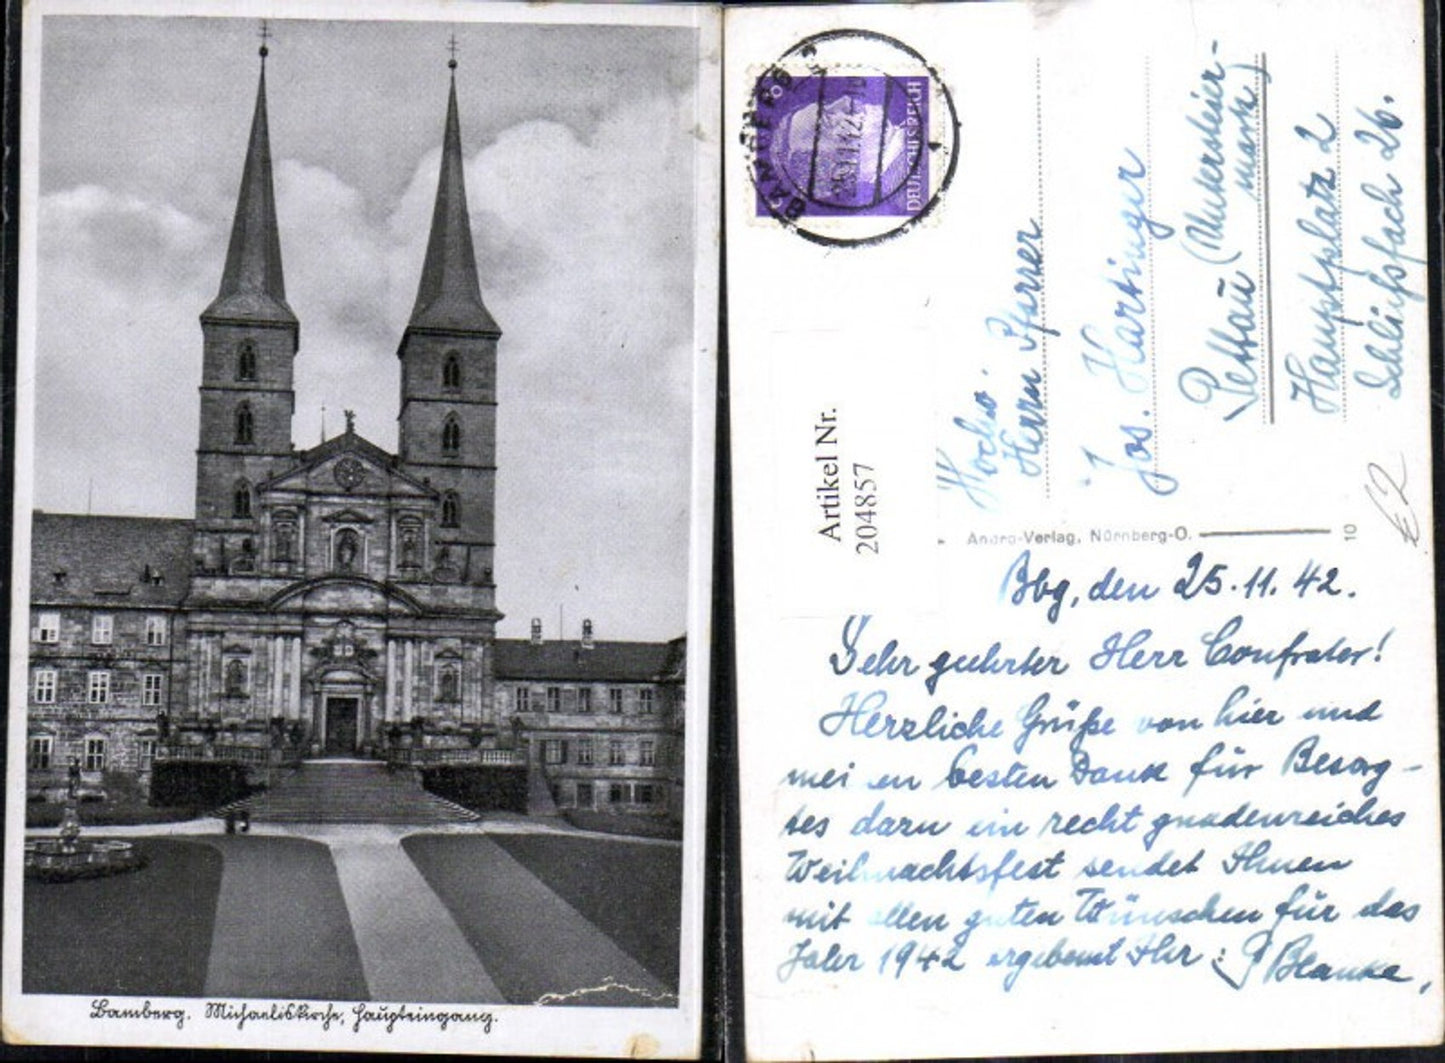 Bamberg. Michaeliskirche, Haupteingang.
BAMBERG 2
25.11.42
DEUTSCHES REICH
6
Artikel Nr.
204857
Hochw.
Herrn Pfarrer
Jos. Hartinger
Pettau (Untersteier-
mark)
Hauptplatz 2
Schließfach 26.
Andro-Verlag, Nürnberg-O.
10
€2
Bbg, den 25.11.42.
Sehr geehrter Herr Confrater!
Herzliche Grüße von hier und
mei en besten Dank für Besorg-
tes darn ein recht gnadenreiches
Weihnachtsfest sendet Ihnen
mit allen guten Wünschen für das
Jahr 1942 ergebenst Ihr : P Blanka,